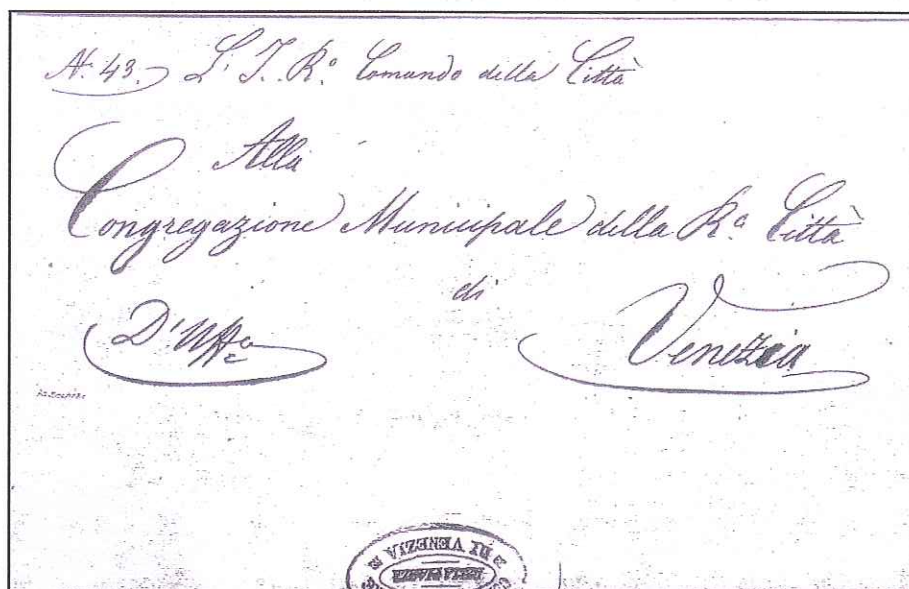 N. 43. L' I. R.º Comando della Città
Alla
Congregazione Municipale della R.ª Città
di
D'Uffº Venezia
DI VENEZIA